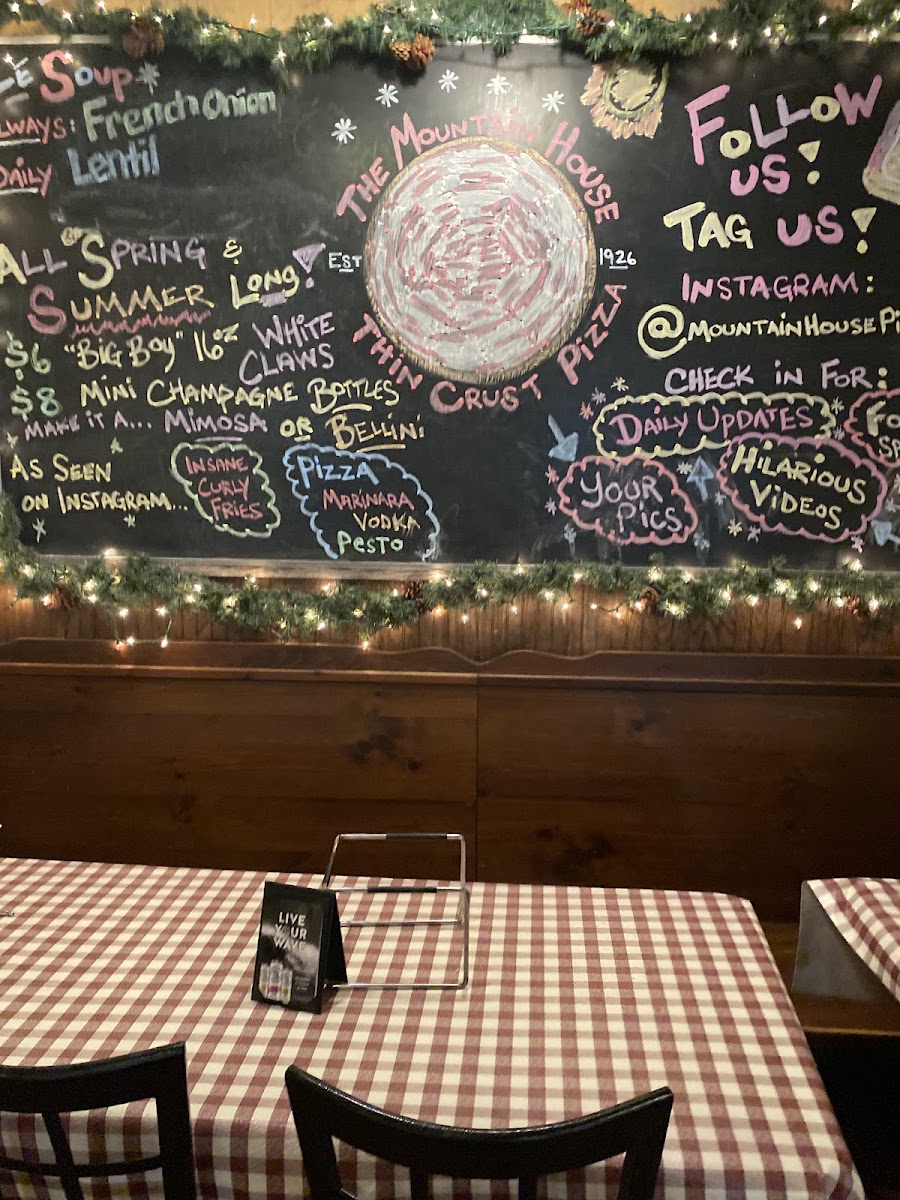 Soup
Always: French Onion
Daily Lentil
All of Spring &
Summer Long!
$6 "Big Boy" 16oz White Claws
$8 Mini Champagne Bottles
Make it a... Mimosa or Bellini
As Seen
on Instagram...
Insane
Curly
Fries
Pizza
Marinara
Vodka
Pesto
The Mountain House
Est 1926
Thin Crust Pizza
Follow
us!
Tag us!
Instagram:
@mountainhousePi
Check in For:
Daily Updates
Your
Pics
Hilarious
Videos
Live
Your
Wave